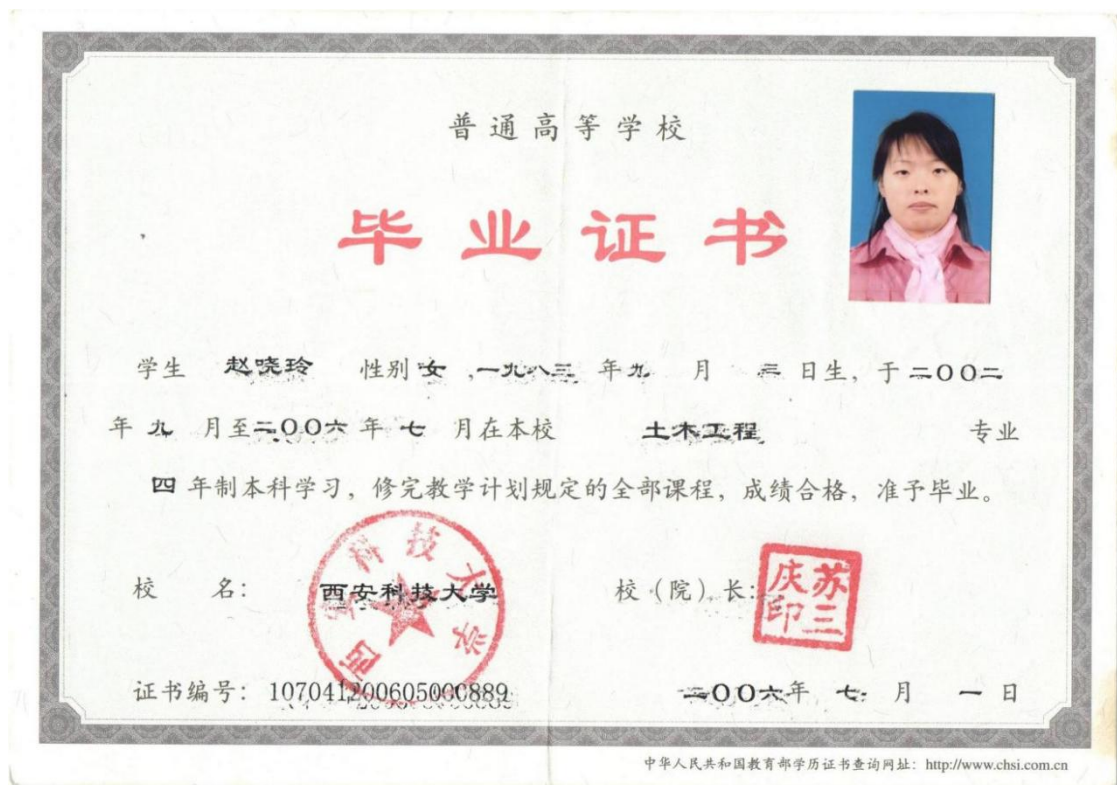 普通高等学校
毕业证书
学生 赵晓玲 性别 女 ,一九八三 年 九 月 三 日生，于 二〇〇二
年 九 月至 二〇〇六 年 七 月在本校 土木工程 专业
四 年制本科学习，修完教学计划规定的全部课程，成绩合格，准予毕业。
校 名： 西安科技大学 校（院）长：
西安科技大学
苏三庆印
证书编号： 107041200605000889 二〇〇六年 七 月 一 日
中华人民共和国教育部学历证书查询网址：http://www.chsi.com.cn